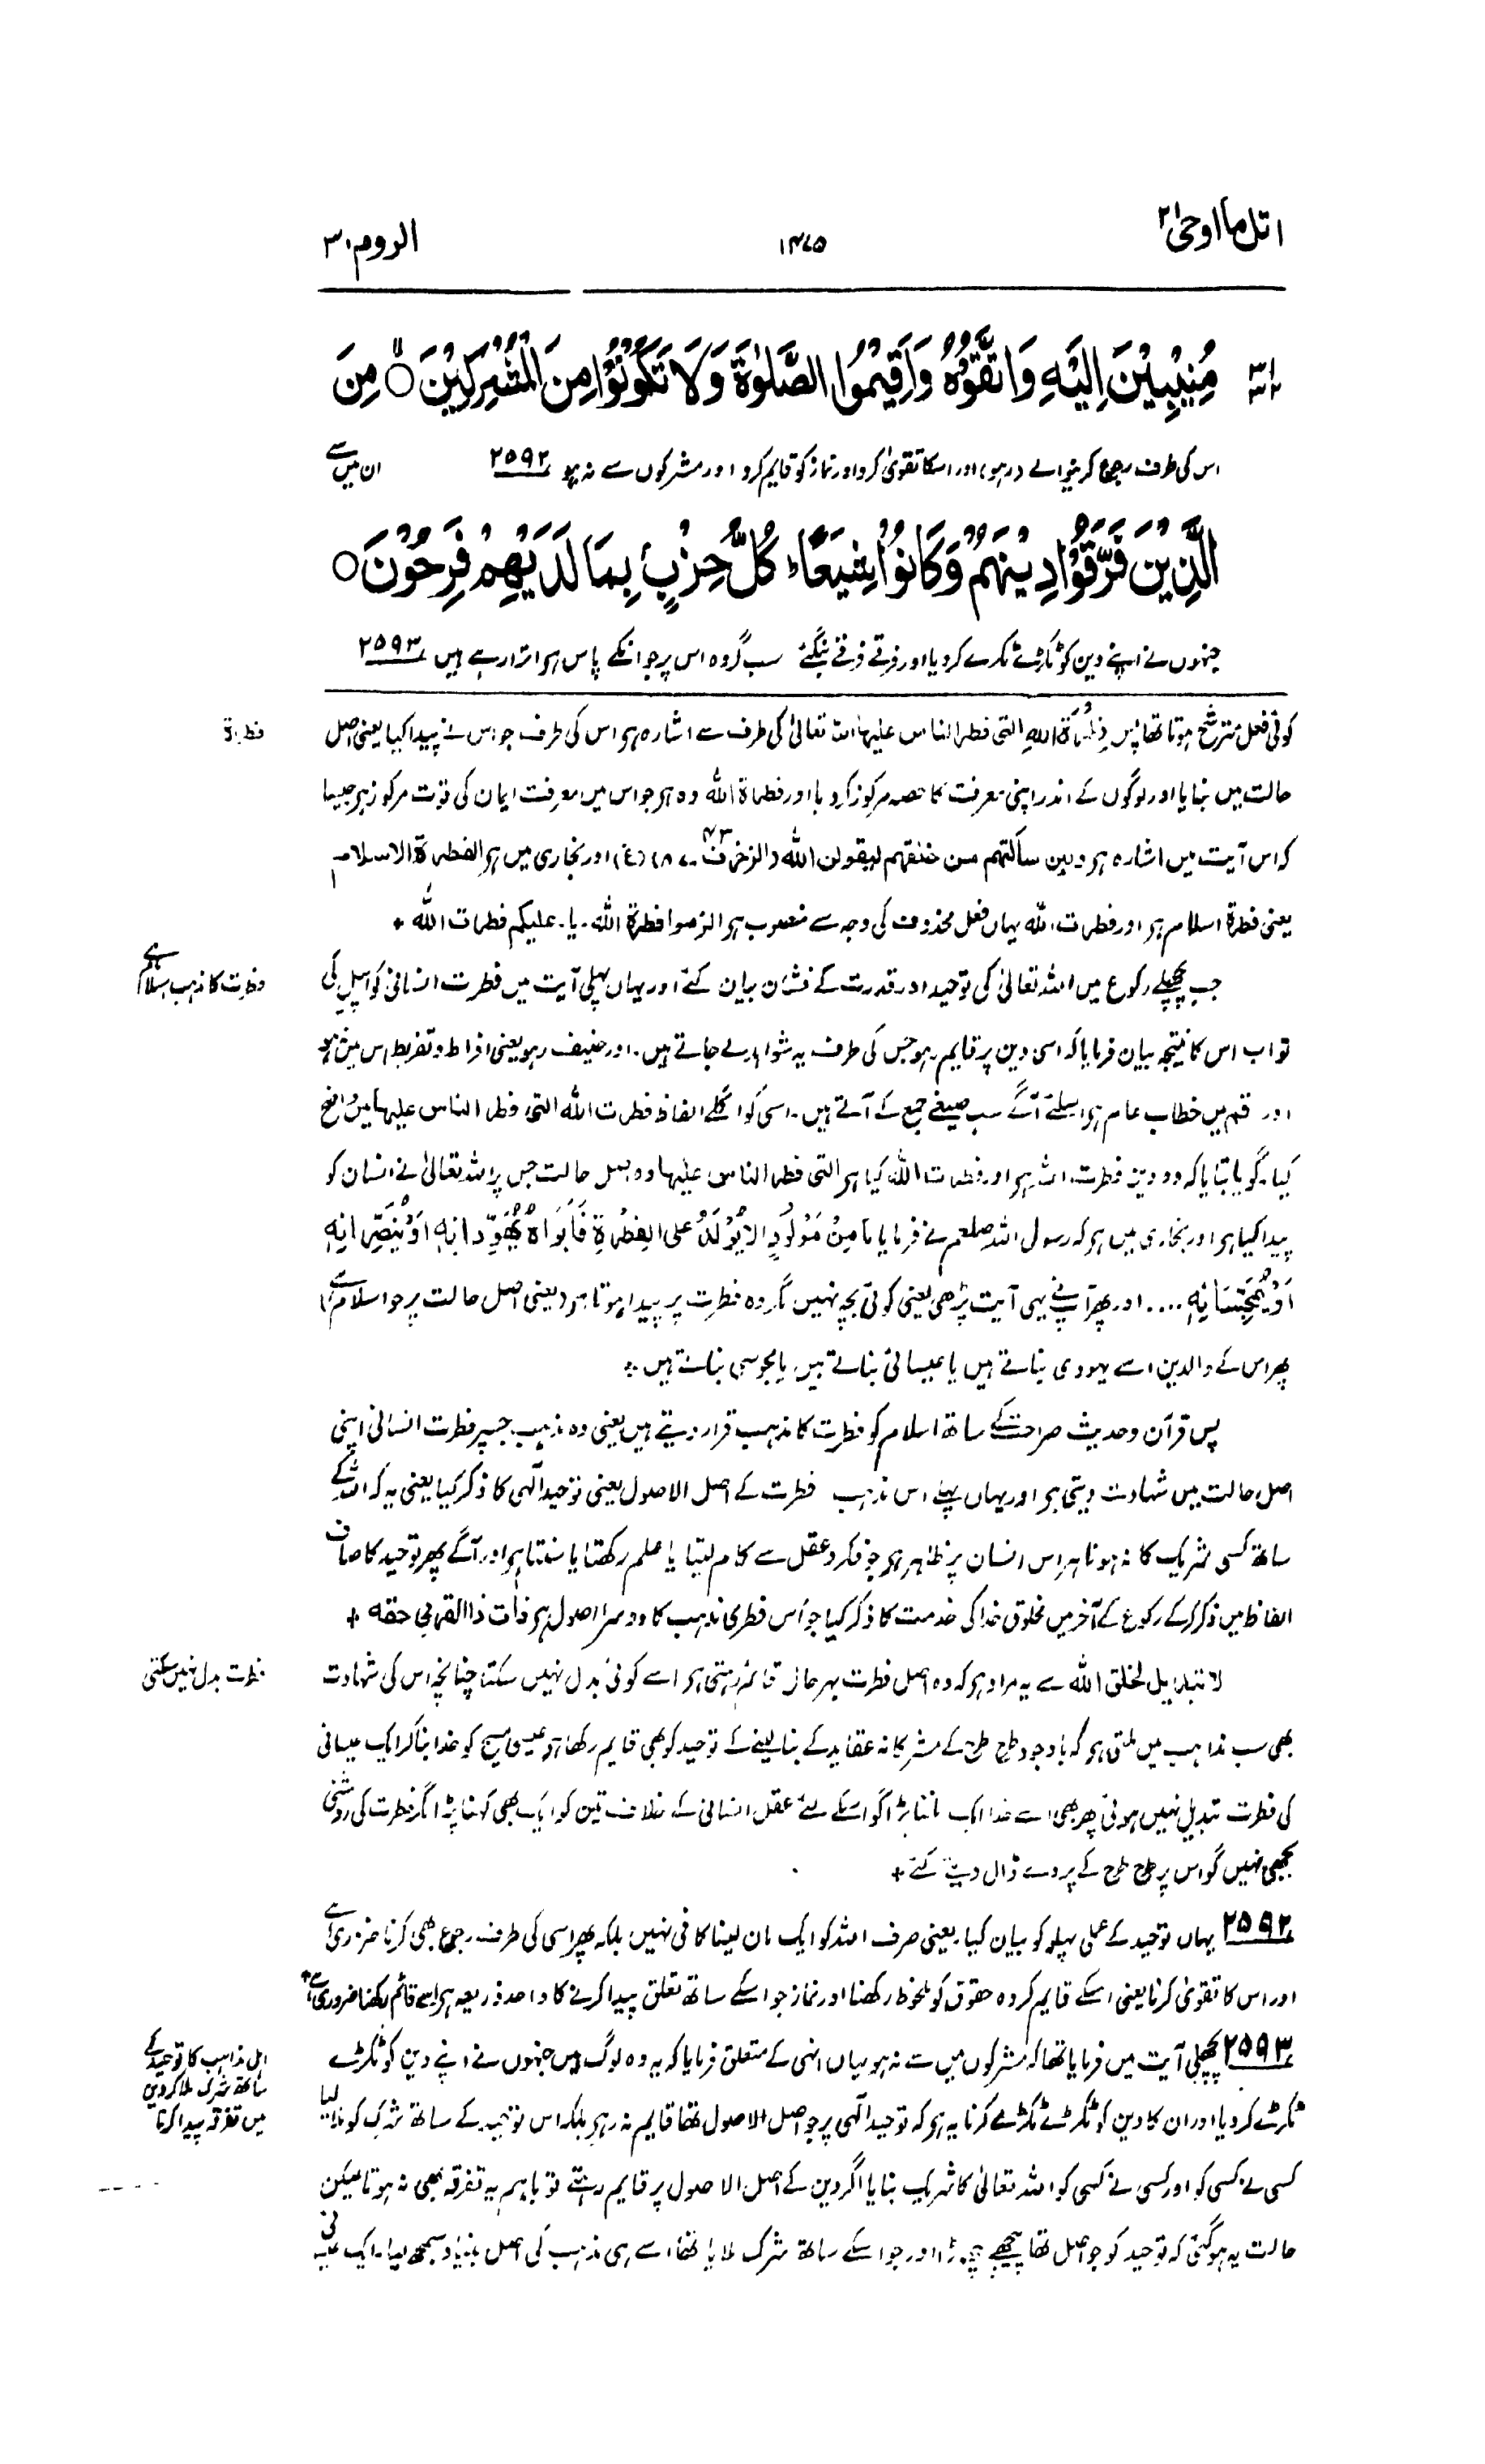 اتل ما اوحی ۲۱
۱۴۷۵
الروم ۳۰
مُنِیْبِیْنَ اِلَیْهِ وَاتَّقُوْهُ وَاَقِیْمُوا الصَّلٰوةَ وَلَا تَكُوْنُوْا مِنَ الْمُشْرِكِیْنَ ○ مِنَ
اس کی طرف رجوع کرنیوالے (رہو) اور اسکا تقویٰ کرو اور نماز کو قایم کرو اور مشرکوں سے نہ ہو ۲۵۹۲ ان میں سے
الَّذِیْنَ فَرَّقُوْا دِیْنَهُمْ وَكَانُوْا شِیَعًا ؕ كُلُّ حِزْبٍۭ بِمَا لَدَیْهِمْ فَرِحُوْنَ ○
جنہوں نے اپنے دین کو ٹکڑے ٹکڑے کردیا اور فرقے فرقے بنگئے سب گروہ اس پر جو انکے پاس ہو اترا رہے ہیں ۲۵۹۳
کوئی فعل مترشح ہوتا تھا پس فِطْرَةَ اللهِ التی فطر الناس علیہا اللہ تعالیٰ کی طرف سے اشارہ ہو اس کی طرف جو اس نے پیدا کیا یعنی اصل
فطرۃ
حالت میں بنایا اور لوگوں کے اندر اپنی معرفت کا حصہ مرکوز کردیا اور فطرۃ اللہ وہ ہو جو اس میں معرفت ایمان کی قوت مرکوز ہو جیسا
کہ اس آیت میں اشارہ ہو ولین سألتهم من خلقهم لیقولن الله (الزخرف ۴۳۔۸۷) (غ) اور بخاری میں ہو الفطرة الاسلام
یعنی فطرۃ اسلام ہو اور فطرت اللہ یہاں فعل محذوف کی وجہ سے منصوب ہو الزموا فطرة الله ۔ یا ۔ علیکم فطرت الله +
جب پچھلے رکوع میں اللہ تعالیٰ کی توحید اور قدرت کے نشان بیان کئے اور یہاں پہلی آیت میں فطرت انسانی کو اپیل کی
فطرت کا مذہب اسلام ہے
تو اب اس کا نتیجہ بیان فرمایا کہ اسی دین پر قایم رہو جس کی طرف یہ شواہد لے جاتے ہیں۔ اور حنیف رہو یعنی افراط و تفریط اس میں نہ ہو
اور قم میں خطاب عام ہو اسلئے آگے سب صیغے جمع کے آتے ہیں۔ اسی کو اگلے الفاظ فطرت الله التی فطر الناس علیہا میں واضح
کیا۔ گویا بتایا کہ وہ دین فطرت اللہ ہو اور فطرت الله کیا ہو التی فطر الناس علیہا وہ اصل حالت جس پر اللہ تعالیٰ نے انسان کو
پیدا کیا ہو اور بخاری میں ہو کہ رسول اللہ صلعم نے فرمایا مَا مِنْ مَوْلُودٍ الا یُوْلَدُ علی الفِطْرَةِ فَاَبَوَاهُ یُهَوِّدانِهٖ اَوْ یُنَصِّرانِهٖ
اَوْ یُمَجِّسَانِهٖ .... اور پھر آپنے یہی آیت پڑھی یعنی کوئی بچہ نہیں مگر وہ فطرت پر پیدا ہوتا ہو (یعنی اصل حالت پر جو اسلام ہے)
پھر اس کے والدین اسے یہودی بناتے ہیں یا عیسائی بناتے ہیں یا مجوسی بناتے ہیں +
پس قرآن و حدیث صراحت کے ساتھ اسلام کو فطرت کا مذہب قرار دیتے ہیں یعنی وہ مذہب جسپر فطرت انسانی اپنی
اصل حالت میں شہادت دیتی ہو اور یہاں پہلے اس مذہب فطرت کے اصل الاصول یعنی توحید الٰہی کا ذکر کیا یعنی یہ کہ اللہ کے
ساتھ کسی شریک کا نہ ہونا ہر اس انسان پر ظاہر ہو جو فکر و عقل سے کام لیتا یا علم رکھتا یا سنتا ہو اور آگے پھر توحید کا صاف
الفاظ میں ذکر کرکے رکوع کے آخر میں مخلوق خدا کی خدمت کا ذکر کیا جو اس فطری مذہب کا دوسرا اصول ہو فاٰت ذا القربی حقه +
لا تبدیل لخلق الله سے یہ مراد ہو کہ وہ اصل فطرت بہرحال قائم رہتی ہو اسے کوئی بدل نہیں سکتا چنانچہ اس کی شہادت
فطرت بدل نہیں سکتی
بھی سب مذاہب میں ملتی ہو کہ باوجود طرح طرح کے مشرکانہ عقاید کے بنا لینے کے توحید کو بھی قایم رکھا ہو عیسیٰ مسیح کو خدا بنا کر ایک عیسائی
کی فطرت تبدیل نہیں ہوئی پھر بھی اسے خدا ایک ماننا پڑا گو اسکے لئے عقل انسانی کے خلاف تین کو ایک بھی کہنا پڑا مگر فطرت کی روشنی
بجھی نہیں گو اس پر طرح طرح کے پردے ڈال دیئے گئے +
۲۵۹۲ یہاں توحید کے عملی پہلو کو بیان کیا۔ یعنی صرف اللہ کو ایک مان لینا کافی نہیں بلکہ پھر اسی کی طرف رجوع بھی کرنا ضروری ہے
اور اس کا تقویٰ کرنا یعنی اسکے قایم کردہ حقوق کو ملحوظ رکھنا اور نماز جو اسکے ساتھ تعلق پیدا کرنے کا واحد ذریعہ ہو اسے قائم رکھنا ضروری ہے +
۲۵۹۳ پچھلی آیت میں فرمایا تھا کہ مشرکوں میں سے نہ ہو یہاں انہی کے متعلق فرمایا کہ یہ وہ لوگ ہیں جنہوں نے اپنے دین کو ٹکڑے
اہل مذاہب کا توحید کے
ساتھ شرک ملا کر دین
میں تفرقہ پیدا کرنا
ٹکڑے کردیا اور ان کا دین کو ٹکڑے ٹکڑے کرنا یہ ہو کہ توحید الٰہی پر جو اصل الاصول تھا قایم نہ رہے بلکہ اس توحید کے ساتھ شرک کو ملا لیا
کسی نے کسی کو اور کسی نے کسی کو اللہ تعالیٰ کا شریک بنایا اگر دین کے اصل الاصول پر قایم رہتے تو باہم یہ تفرقہ بھی نہ ہوتا لیکن
حالت یہ ہوگئی کہ توحید کو جو اصل تھا پیچھے چھوڑا اور جو اسکے ساتھ شرک ملایا تھا اسے ہی مذہب کی اصل بنیاد سمجھ لیا۔ ایک